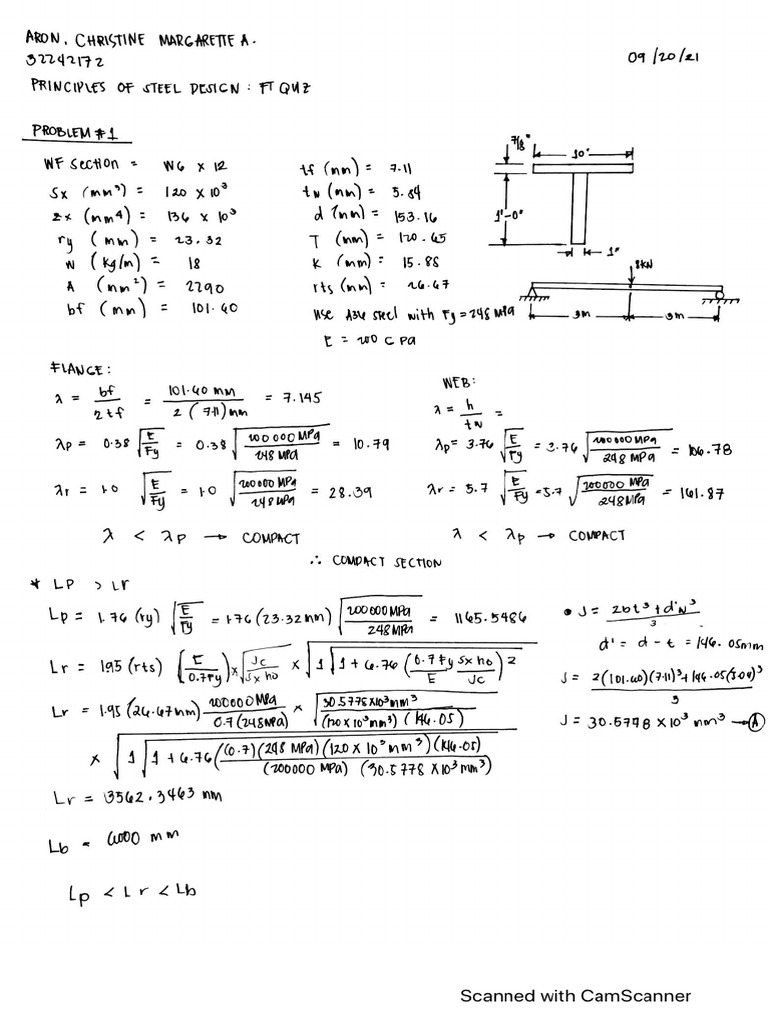 ARON, CHRISTINE MARGARETTE A.
32242172
09/20/21
PRINCIPLES OF STEEL DESIGN: FT QUIZ
PROBLEM #1
WF Section = W6 x 12
Sx (mm³) = 120 x 10³
Zx (mm4) = 136 x 10³
ry (mm) = 23.32
W (kg/m) = 18
A (mm²) = 2290
bf (mm) = 101.60
tf (mm) = 7.11
tw (mm) = 5.84
d (mm) = 153.16
T (mm) = 120.65
K (mm) = 15.88
rts (mm) = 26.67
Use A36 steel with Fy = 248 MPa
E = 200 GPa
7/8"
10"
1'-0"
1"
8kN
3m
3m
FLANGE:
λ = bf / 2tf = 101.60 mm / 2(7.11)mm = 7.145
λp = 0.38 √E/Fy = 0.38 √200000MPa/248MPa = 10.79
λr = 1.0 √E/Fy = 1.0 √200000MPa/248MPa = 28.39
λ < λp → COMPACT
WEB:
λ = h / tw =
λp = 3.76 √E/Fy = 3.76 √200000MPa/248MPa = 106.78
λr = 5.7 √E/Fy = 5.7 √200000MPa/248MPa = 161.87
λ < λp → COMPACT
∴ COMPACT SECTION
* LP > Lr
Lp = 1.76 (ry) √E/Fy = 1.76 (23.32mm) √200000MPa/248MPa = 1165.5486
Lr = 1.95 (rts) (E/0.7Fy) x √Jc/Sx ho x √1 √1 + 6.76 (0.7Fy Sx ho / E Jc)²
Lr = 1.95 (26.67mm) 200000MPa/0.7(248MPa) x √30.5778x10³mm³/(120x10³mm³)(146.05)
x √1 √1 + 6.76 ((0.7)(248 MPa)(120 x 10³mm³)(146.05) / (200000 MPa)(30.5778 x10³mm³)
Lr = 3562.3463 mm
Lb = 6000 mm
Lp < Lr < Lb
• J = 2bt³ + d'w³ / 3
d' = d - t = 146.05mm
J = 2(101.60)(7.11)³ + 146.05(5.84)³ / 3
J = 30.5778 x10³ mm³ → A
Scanned with CamScanner